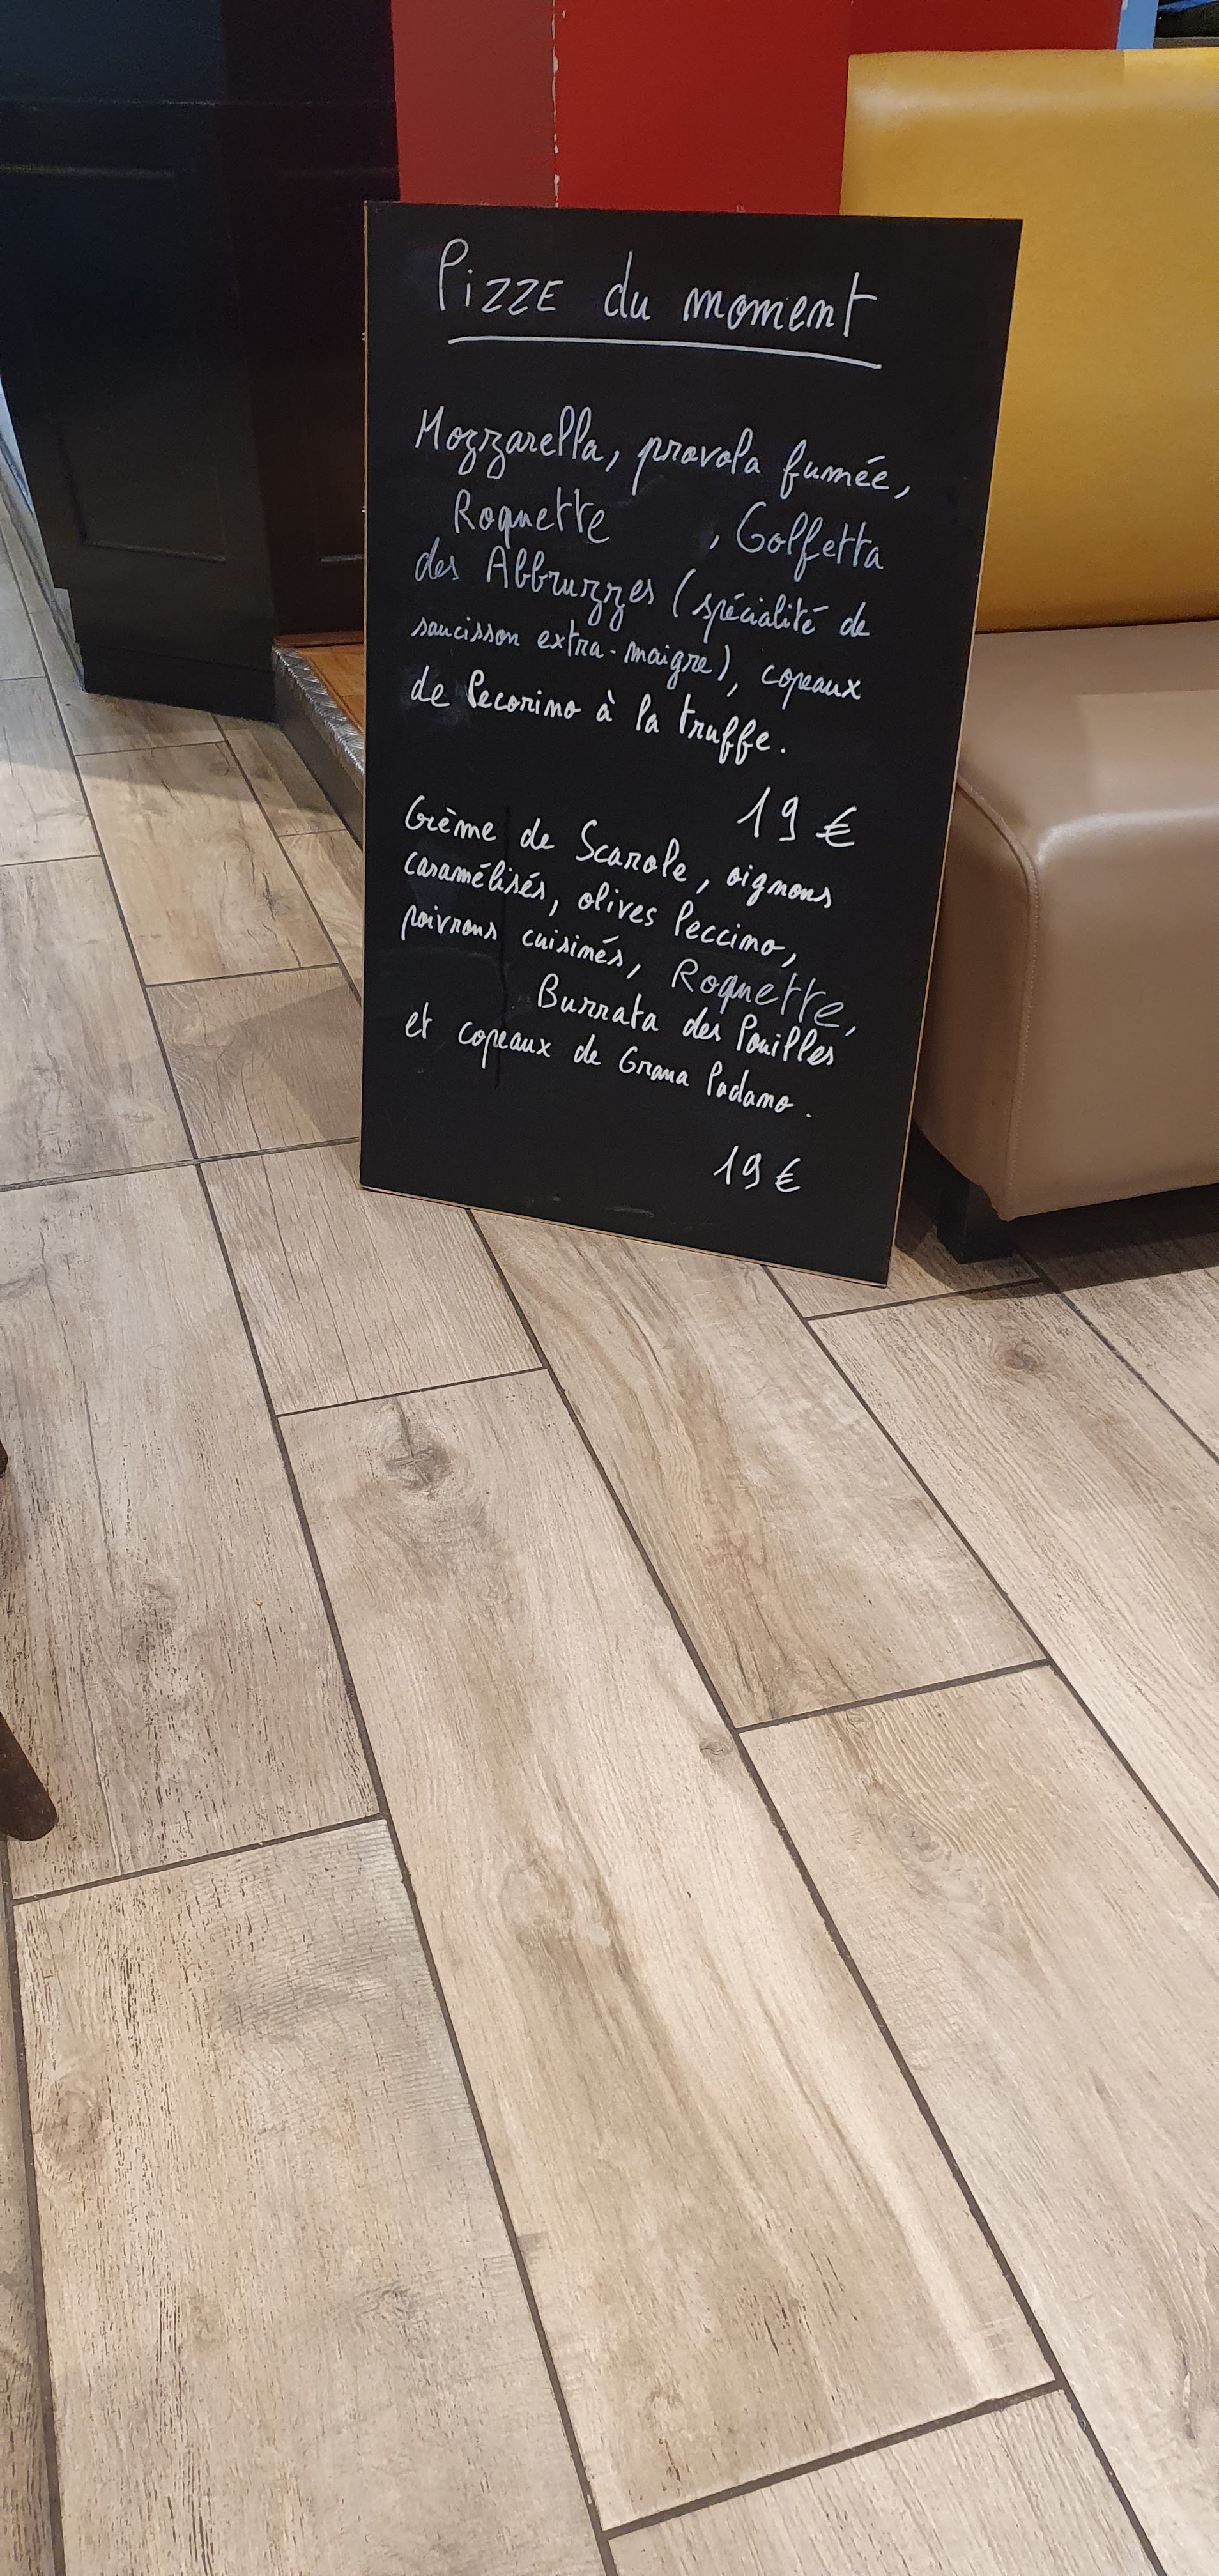 PiZZE du moment
Mozzarella, provola fumée,
Roquette , Golfetta
des Abbruzzes (spécialité de
saucisson extra-maigre), copeaux
de Pecorino à la truffe.
19 €
Crème de Scarole, oignons
caramélisés, olives Peccino,
poivrons cuisinés, Roquette,
Burrata des Pouilles
et copeaux de Grana Padano.
19 €